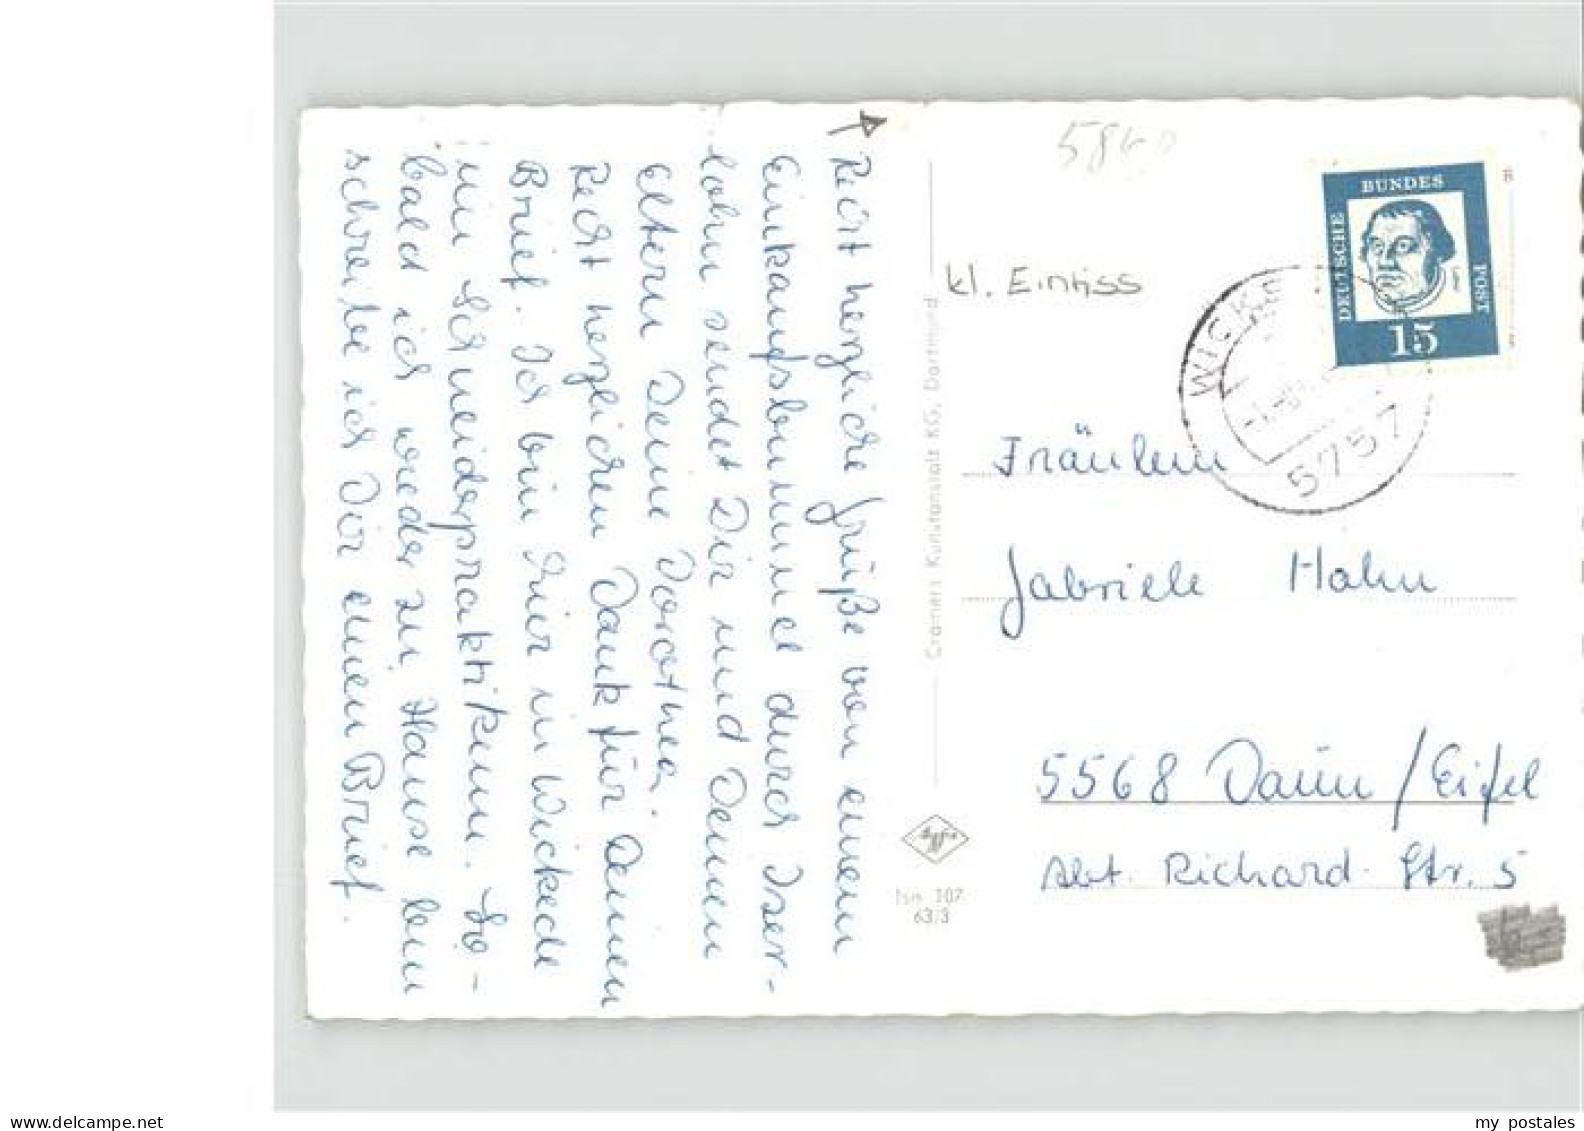 Recht herzliche Grüße von einem
Einkaufsbummel durch Iser-
lohn sendet Dir und Deinen
Eltern Deine Dorothea.
Recht herzlichen Dank für Deinen
Brief. Ich bin hier in Wickede
im Schneiderpraktikum. So-
bald ich wieder zu Hause bin
schreibe ich Dir einen Brief.
Cramers Kunstanstalt KG, Dortmund
Agfa
107
63/3
kl. Einriss
DEUTSCHE BUNDES POST
15
WICKE
5757
Fräulein
Gabriele Hahn
5568 Daun / Eifel
Abt. Richard-Str. 5
delcampe.net
my_postales